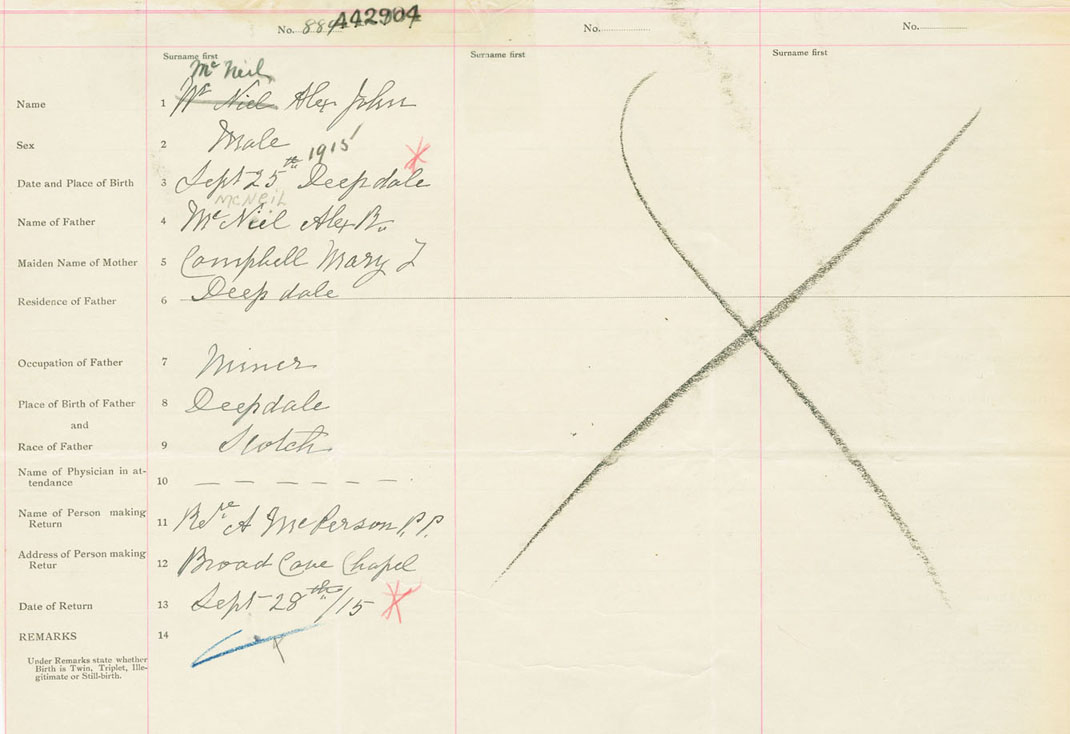 No. 889 442904
No.
No.
Surname first
Surname first
Surname first
Mc Neil
Name 1 Mc Niel Alex John
Sex 2 Male
Date and Place of Birth 3 Sept 25th 1915 Deepdale
MCNEIL
Name of Father 4 Mc Niel Alex R.
Maiden Name of Mother 5 Campbell Mary J
Residence of Father 6 Deepdale
Occupation of Father 7 Miner
Place of Birth of Father 8 Deepdale
and
Race of Father 9 Scotch
Name of Physician in at-
tendance 10 — — — — — —
Name of Person making
Return 11 Rev A McPerson, P.P.
Address of Person making
Retur 12 Broad Cove Chapel
Date of Return 13 Sept 28th/15
REMARKS 14
Under Remarks state whether
Birth is Twin, Triplet, Ille-
gitimate or Still-birth.